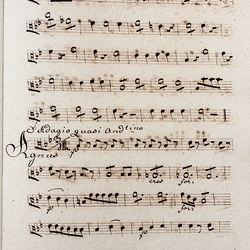 Adagio quasi And.tino
Agnus
cres for:
p for:
p